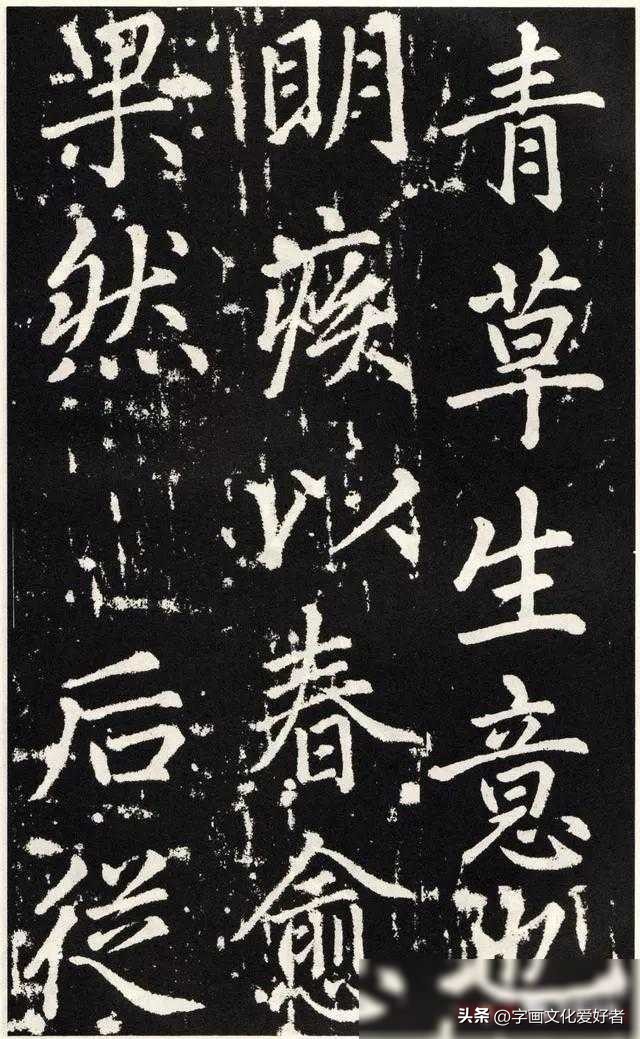 青草生意也
明疾以春愈
果然 后從
头条 @字画文化爱好者